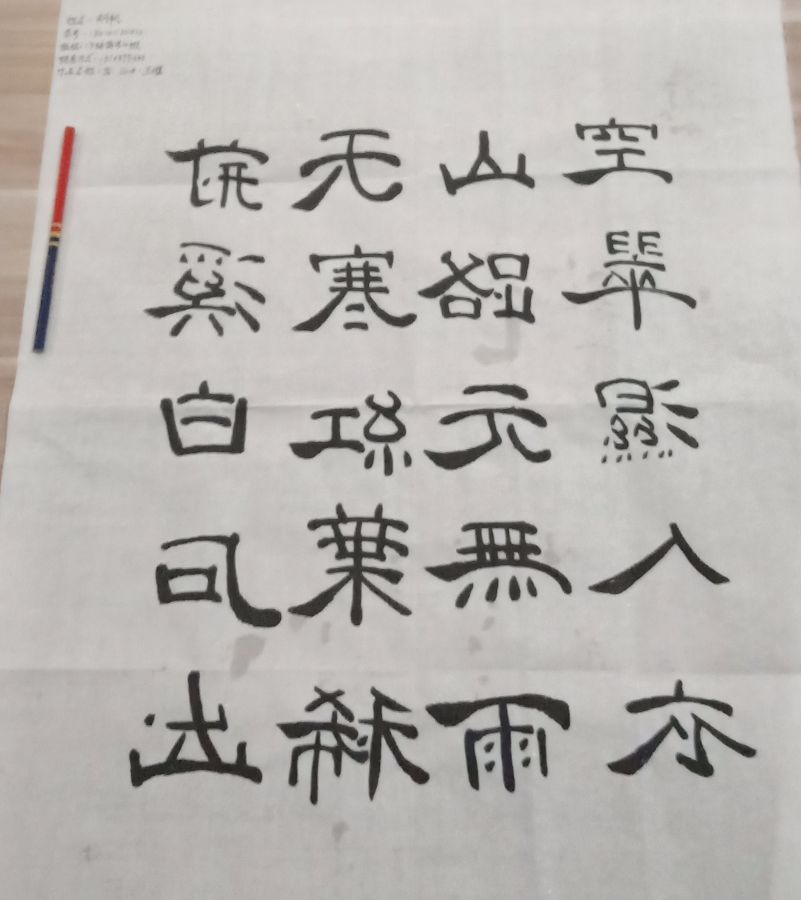 荊溪白石出
天寒紅葉稀
山路元無雨
空翠濕人衣